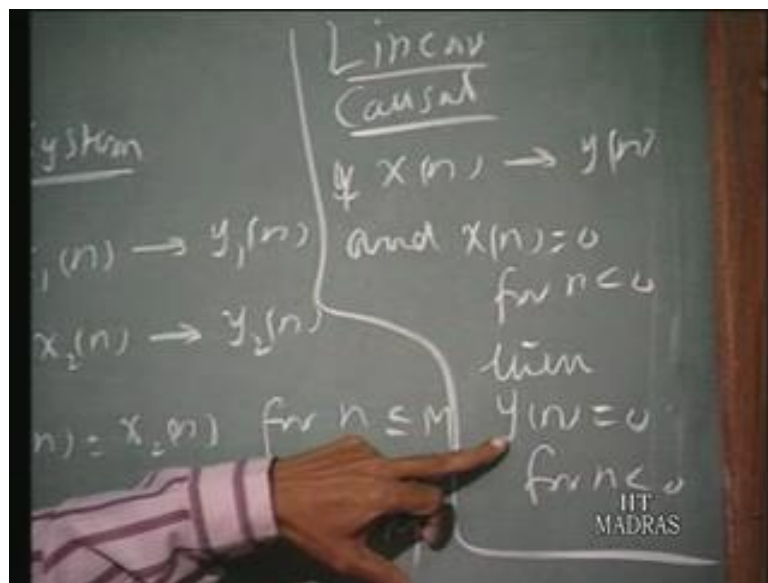 ystem
1(n) → y1(n)
x2(n) → y2(n)
n) = x2(n) for n ≤ M
Linear
Causal
If x(n) → y(n)
and x(n) = 0
for n < 0
then
y(n) = 0
for n < 0
IIT
MADRAS